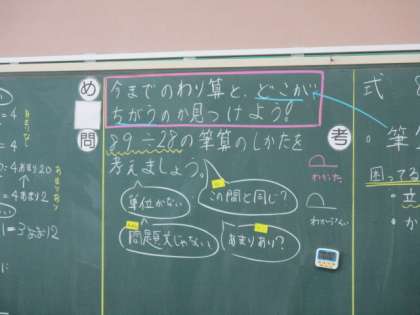 = 4
= 4
: 4あまり20
= 4あまり2
= 3あまり2
め
今までのわり算と、どこが
ちがうのか見つけよう!
問
89÷28の筆算のしかたを
考えましょう。
単位がない
この間と同じ?
問題文じゃない
あまりあり?
考
わかった
わからない
式 8
・筆
困ってる
・立
・か